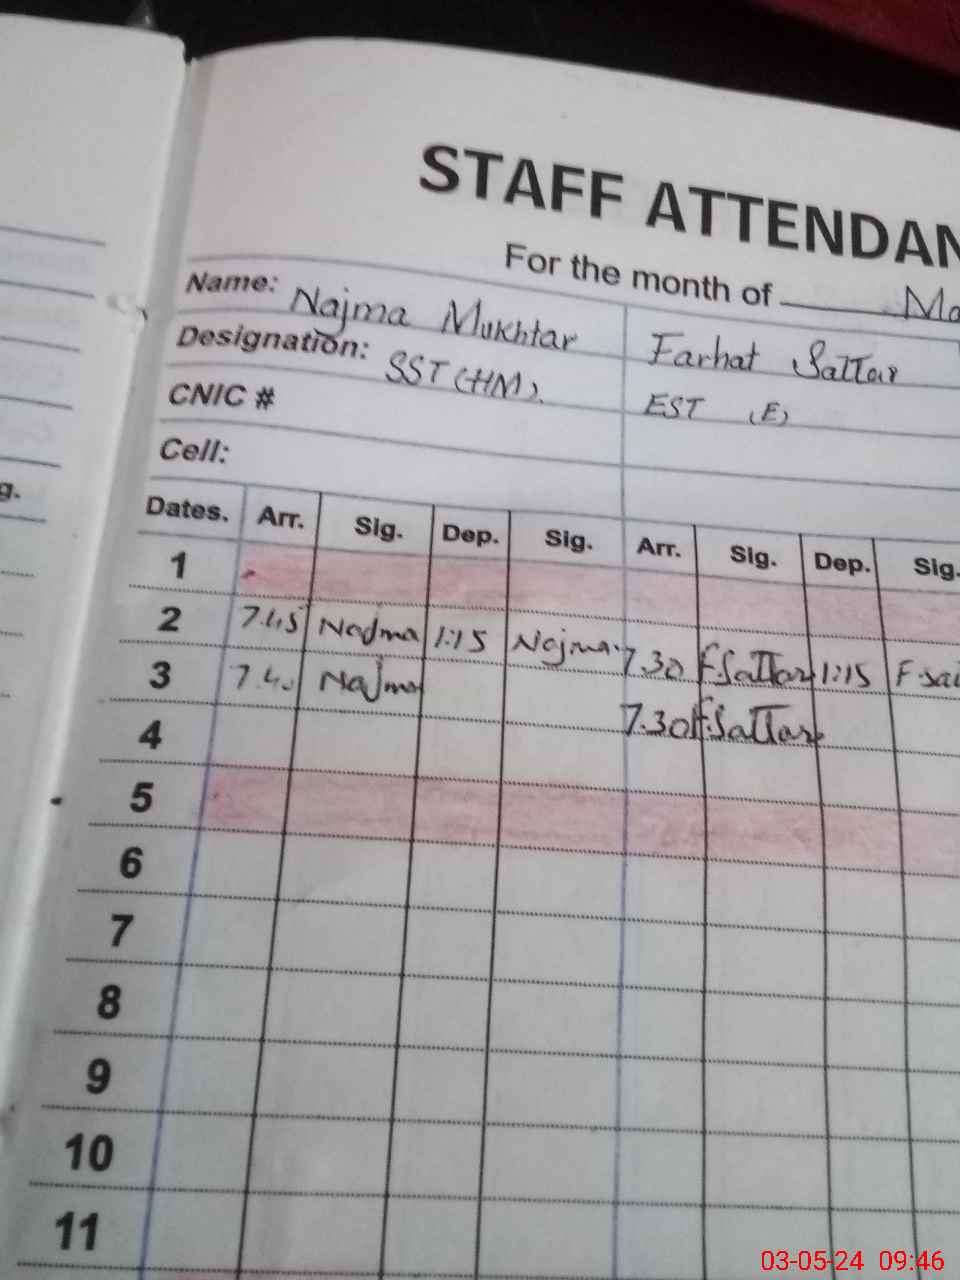 STAFF ATTENDAN
For the month of Ma
Name: Najma Mukhtar Farhat Sattar
Designation: SST (HM). EST (E)
CNIC #
Cell:
g.
Dates. Arr. Sig. Dep. Sig. Arr. Sig. Dep. Sig.
1
2 7.45 Najma 1:15 Najma 7.30 F.Sattar 1:15
3 7.40 Najma 7.30 F.Sattar
4
5
6
7
8
9
10
11
03-05-24 09:46